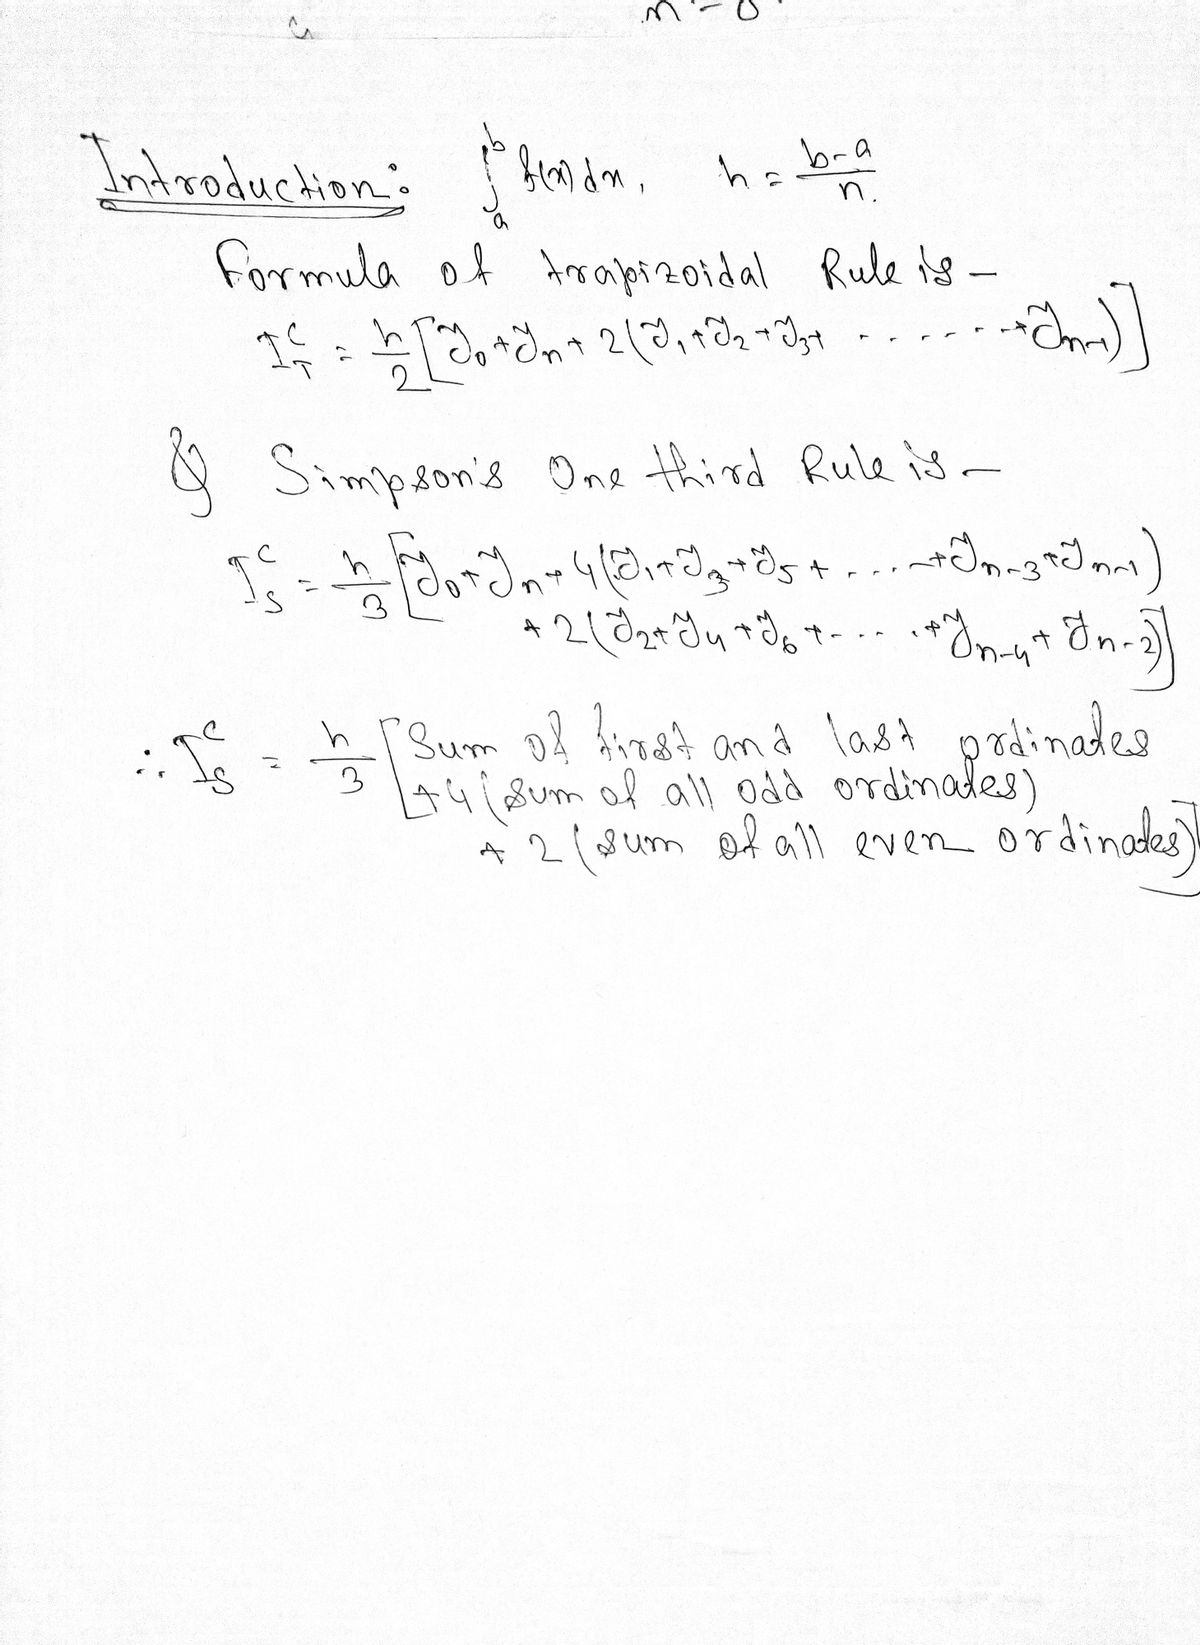 Introduction: ∫_a^b f(x) dx, h = (b-a)/n.
Formula of trapizoidal Rule is -
I_T^C = h/2 [y_0 + y_n + 2(y_1 + y_2 + y_3 + ....... + y_{n-1})]
& Simpson's One third Rule is -
I_S^C = h/3 [y_0 + y_n + 4(y_1 + y_3 + y_5 + .... + y_{n-3} + y_{n-1})
+ 2(y_2 + y_4 + y_6 + .... + y_{n-4} + y_{n-2})]
∴ I_S^C = h/3 [Sum of first and last ordinates
+4 (sum of all odd ordinates)
+ 2 (sum of all even ordinates)]